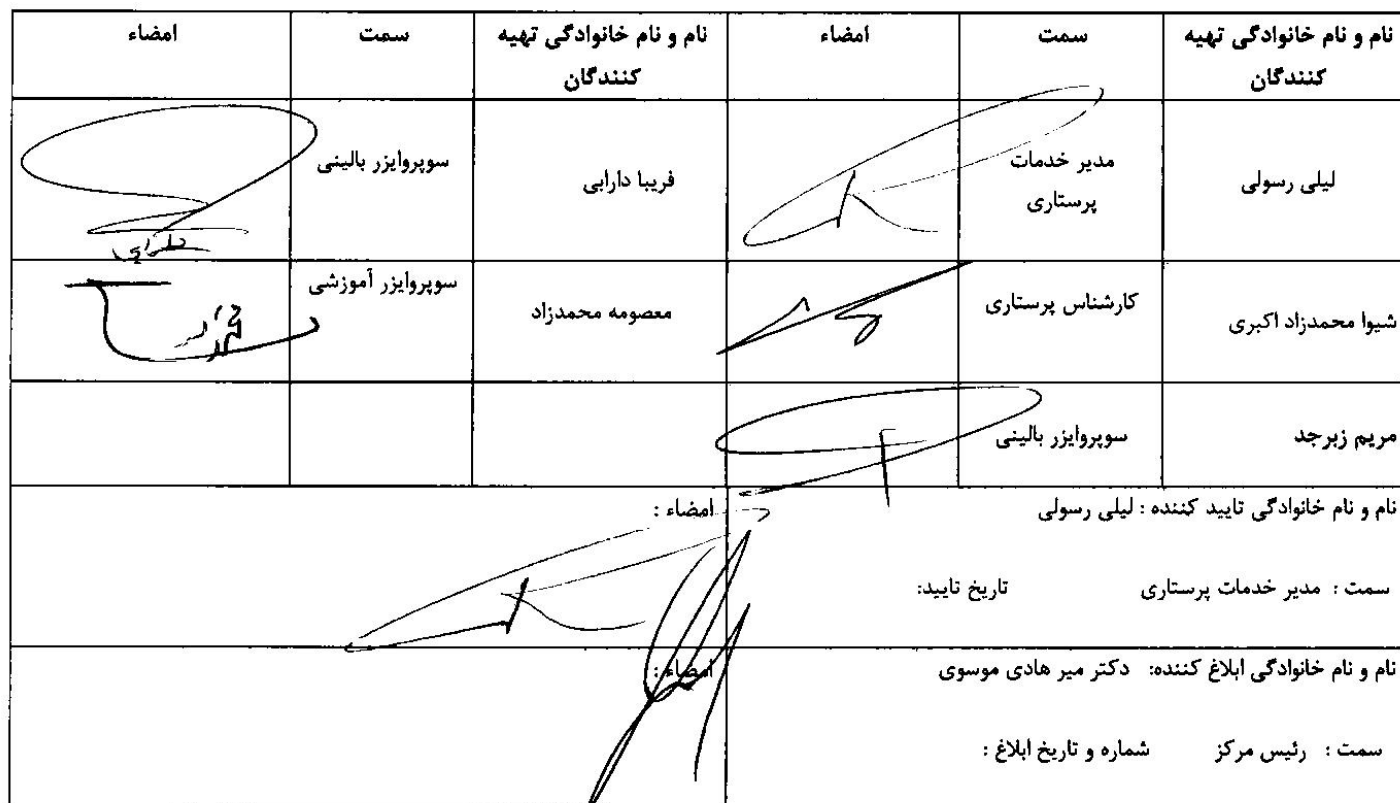 نام و نام خانوادگی تهیه کنندگان سمت امضاء نام و نام خانوادگی تهیه کنندگان سمت امضاء
لیلی رسولی مدیر خدمات پرستاری فریبا دارابی سوپروایزر بالینی
شیوا محمدزاد اکبری کارشناس پرستاری معصومه محمدزاد سوپروایزر آموزشی
مریم زبرجد سوپروایزر بالینی
نام و نام خانوادگی تایید کننده : لیلی رسولی امضاء :
سمت : مدیر خدمات پرستاری تاریخ تایید:
نام و نام خانوادگی ابلاغ کننده: دکتر میر هادی موسوی امضاء :
سمت : رئیس مرکز شماره و تاریخ ابلاغ :